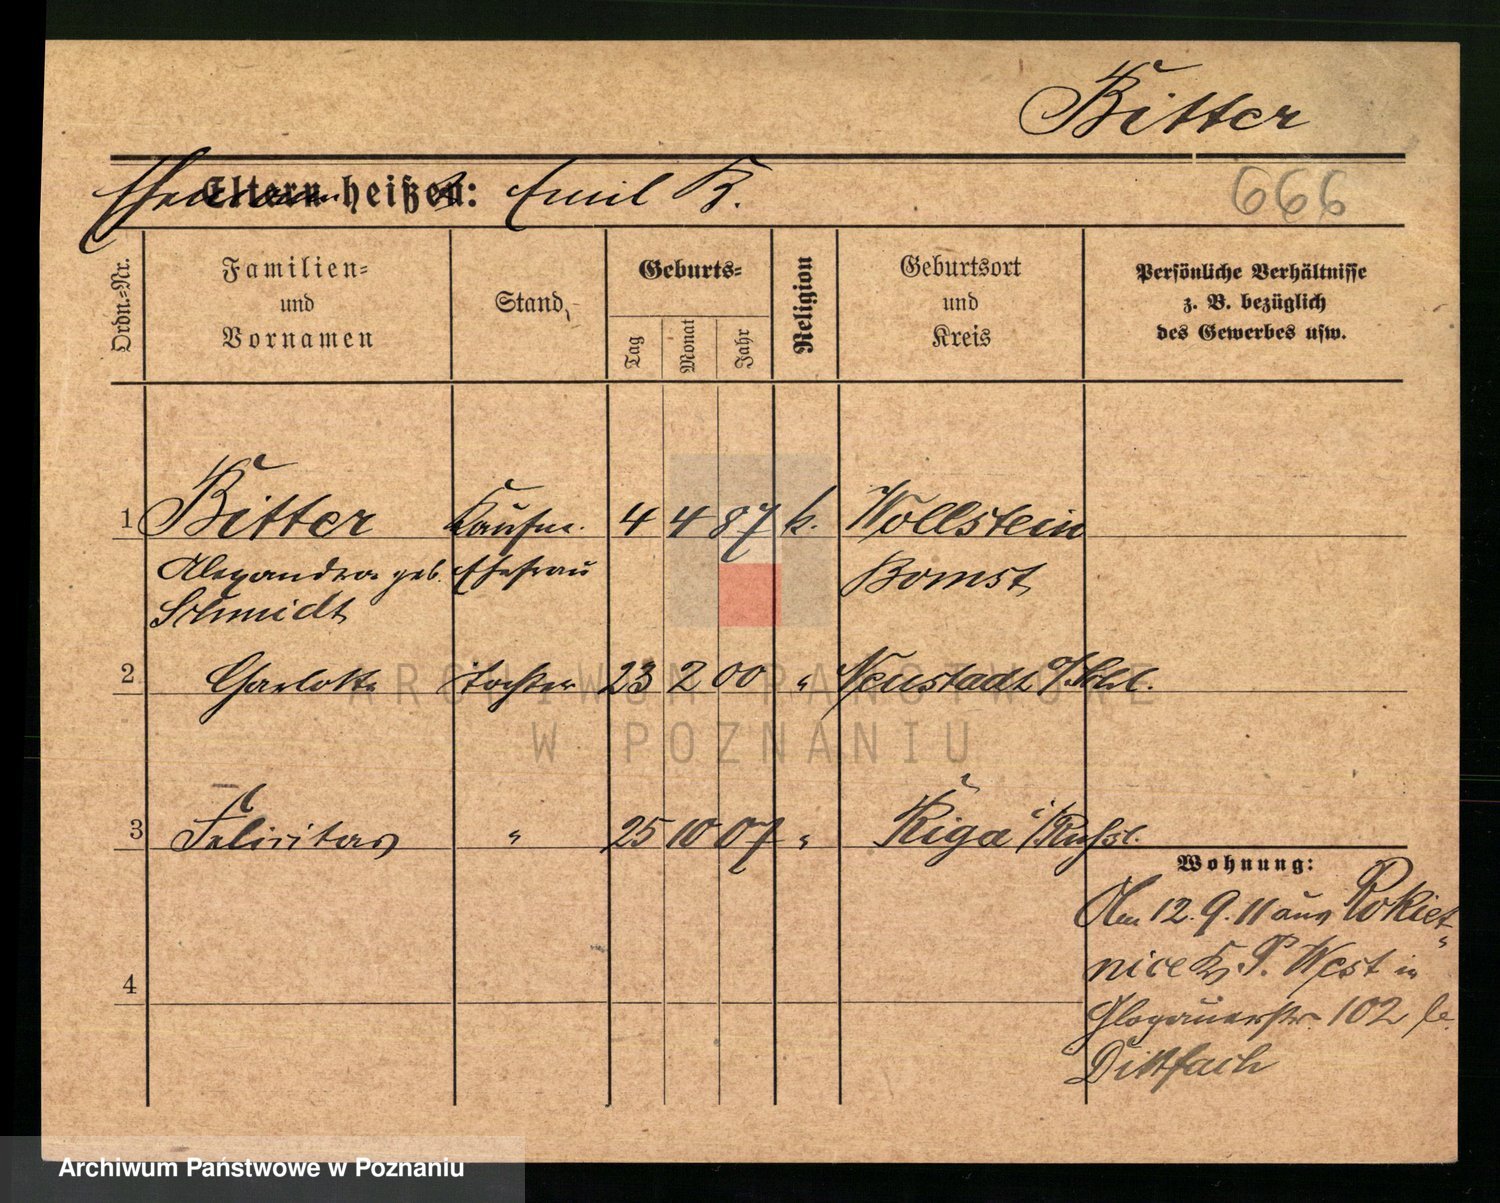 Bitter
Ehemann Eltern heißen: Emil B.
666
Ordn.-Nr.
Familien-
und
Vornamen
Stand
Geburts-
Tag
Monat
Jahr
Religion
Geburtsort
und
Kreis
Persönliche Verhältnisse
z. B. bezüglich
des Gewerbes usw.
1 Bitter Kaufm. 4 4 87 k. Wollstein
Alexandra geb. Ehefrau Bomst
Schmidt
2 Charlotte Tochter 23 2 00 " Neustadt O/Schl.
ARCHIWUM PAŃSTWOWE
W POZNANIU
3 Felicitas " 25 10 07 " Riga i/Russl.
Wohnung:
Am 12. 9. 11 aus Rokiet-
nice Kr. P. West in
4
Glogauerstr. 102 b.
Dittfach
Archiwum Państwowe w Poznaniu